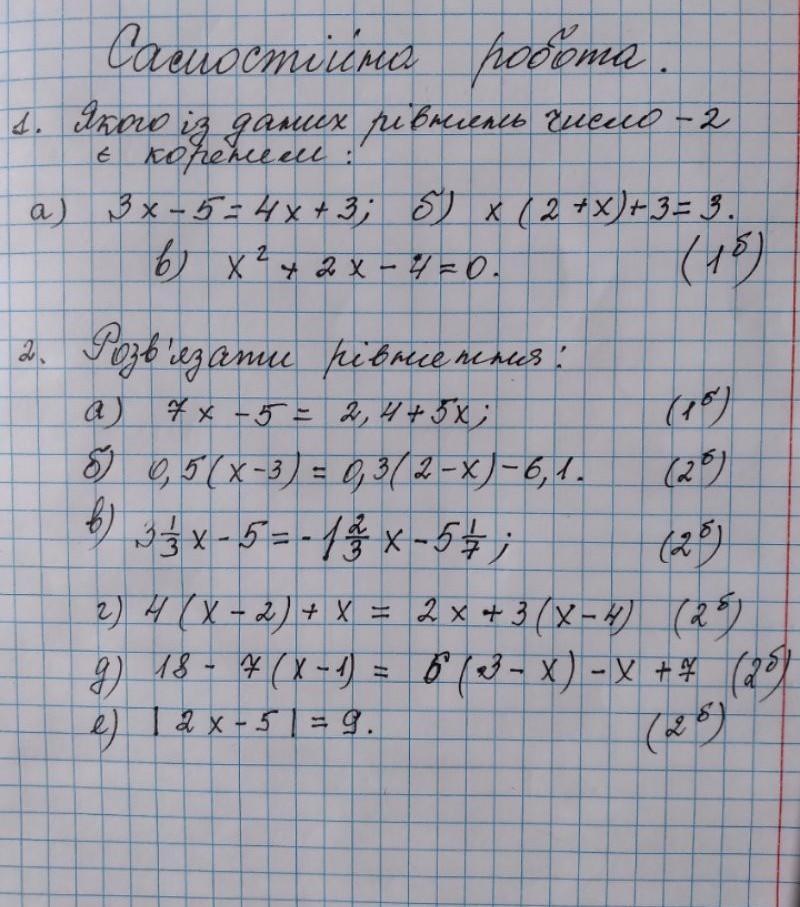 Самостійна робота.
1. Якого із даних рівнянь число -2
є коренем:
а) 3x - 5 = 4x + 3; б) x(2+x)+3=3.
в) x² + 2x - 4 = 0. (1б)
2. Розв'язати рівняння:
а) 7x - 5 = 2,4 + 5x; (1б)
б) 0,5(x-3) = 0,3(2-x) - 6,1. (2б)
в) 3 1/3 x - 5 = -1 2/3 x - 5 1/7; (2б)
г) 4(x-2) + x = 2x + 3(x-4) (2б)
д) 18 - 7(x-1) = 6(3-x) - x + 7 (2б)
е) |2x-5| = 9. (2б)